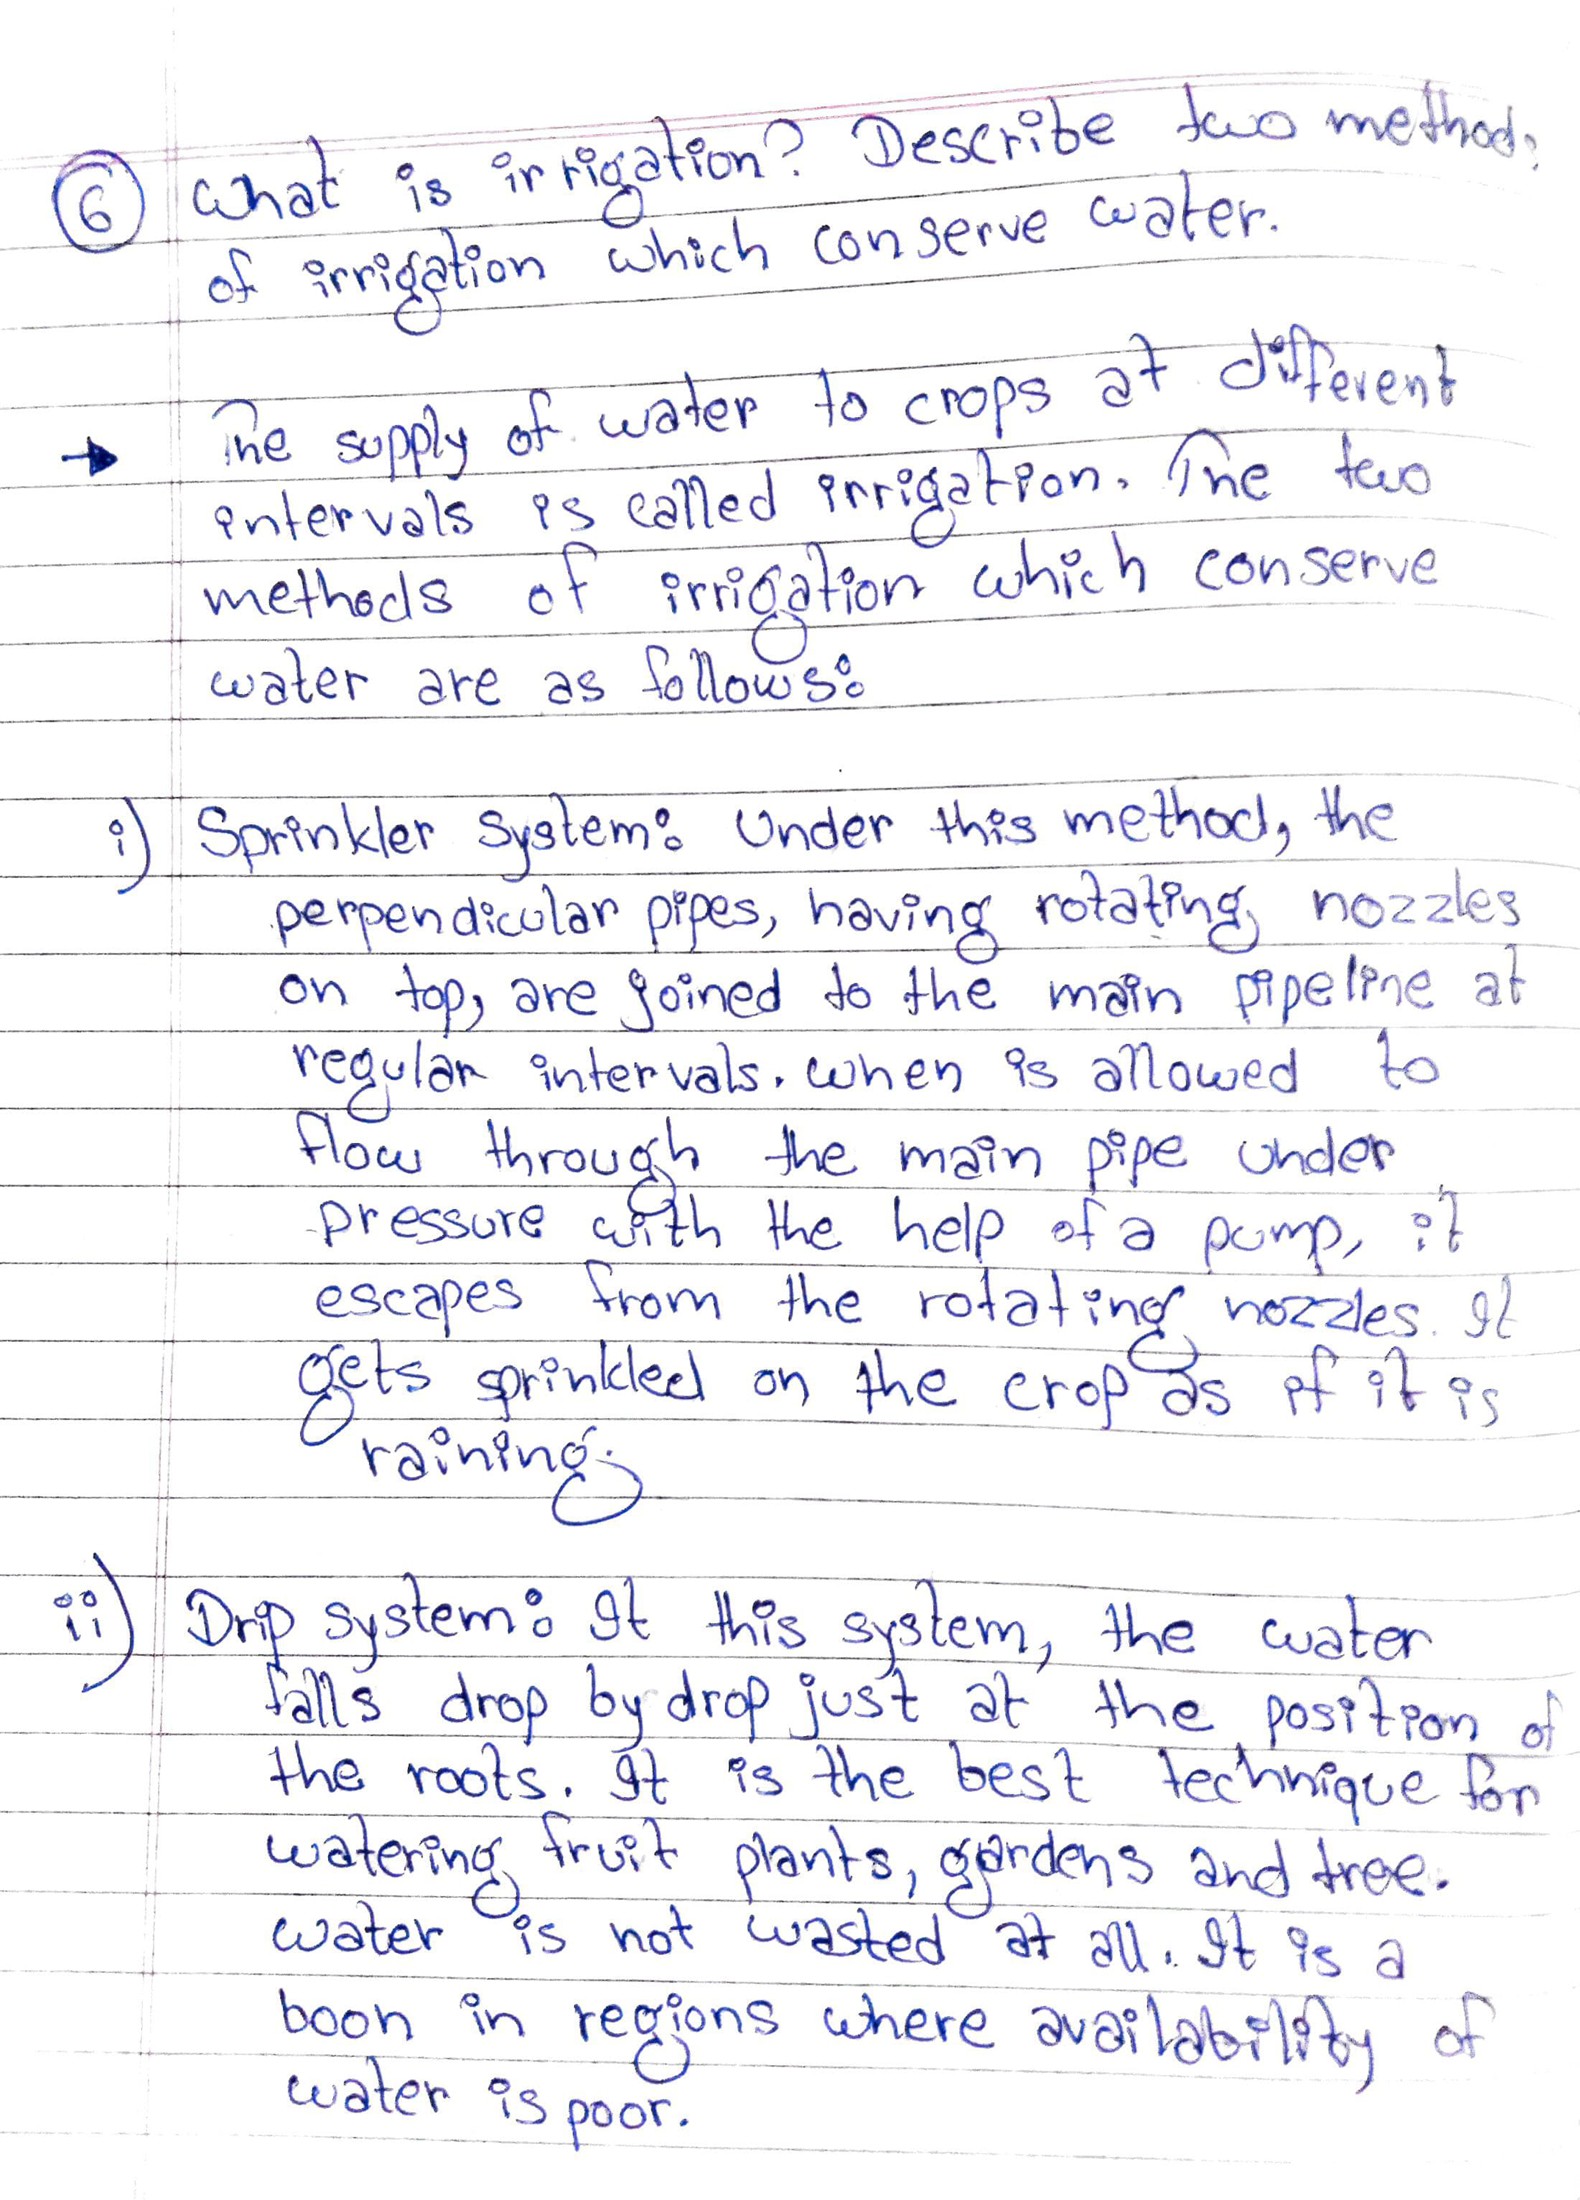 6 What is irrigation? Describe two methods
of irrigation which conserve water.
→ The supply of water to crops at different
intervals is called irrigation. The two
methods of irrigation which conserve
water are as follows:
i) Sprinkler system: Under this method, the
perpendicular pipes, having rotating nozzles
on top, are joined to the main pipeline at
regular intervals. When is allowed to
flow through the main pipe under
pressure with the help of a pump, it
escapes from the rotating nozzles. It
gets sprinkled on the crop as if it is
raining.
ii) Drip system: It this system, the water
falls drop by drop just at the position of
the roots. It is the best technique for
watering fruit plants, gardens and tree.
water is not wasted at all. It is a
boon in regions where availability of
water is poor.